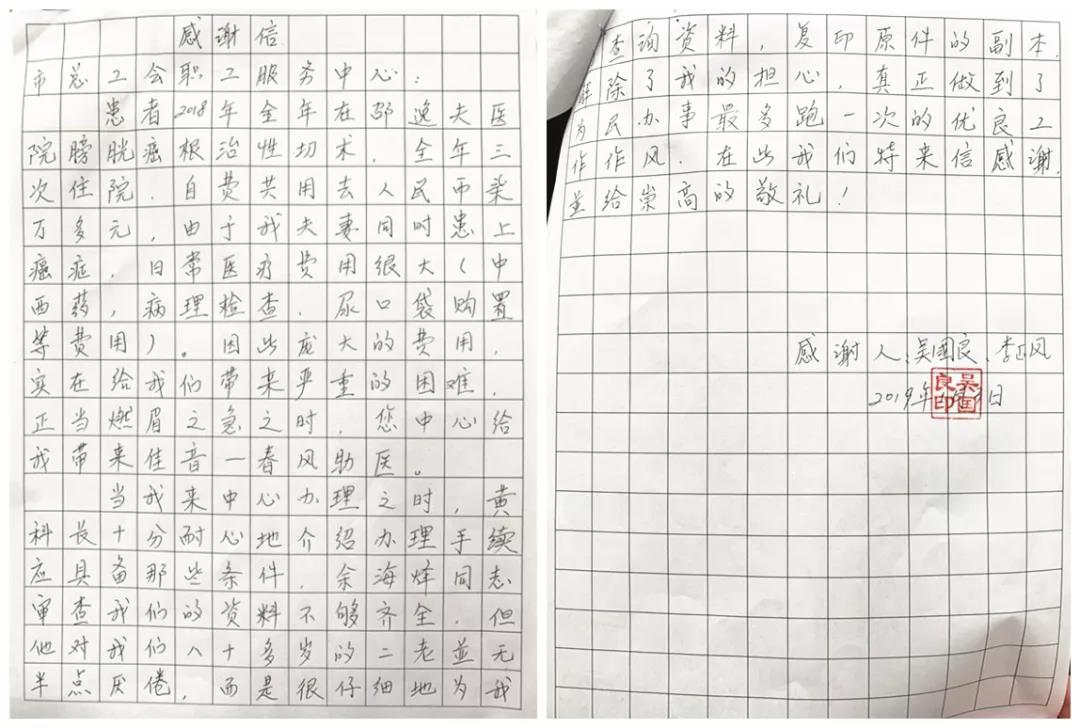 感谢信
市总工会职工服务中心：
患者2018年全年在邵逸夫医
院膀胱癌根治性切术，全年三
次住院．自费共用去人民币柒
万多元，由于我夫妻同时患上
癌症，日常医疗费用很大（中
西药，病理检查．尿口袋购置
等费用）。因此庞大的费用，
实在给我们带来严重的困难．
正当燃眉之急之时，您中心给
我带来佳音一春风助医。
当我来中心办理之时，黄
科长十分耐心地介绍办理手续
应具备那些条件．余海烽同志
审查我们的资料不够齐全．但
他对我们八十多岁的二老並无
半点厌倦，而是很仔细地为我
查询资料，复印原件的副本．
除了我的担心，真正做到了
为民办事最多跑一次的优良工
作作风．在此我们特来信感谢．
並给崇高的敬礼！
感谢人：吴國良、李正风
2019年 日
吴国良印